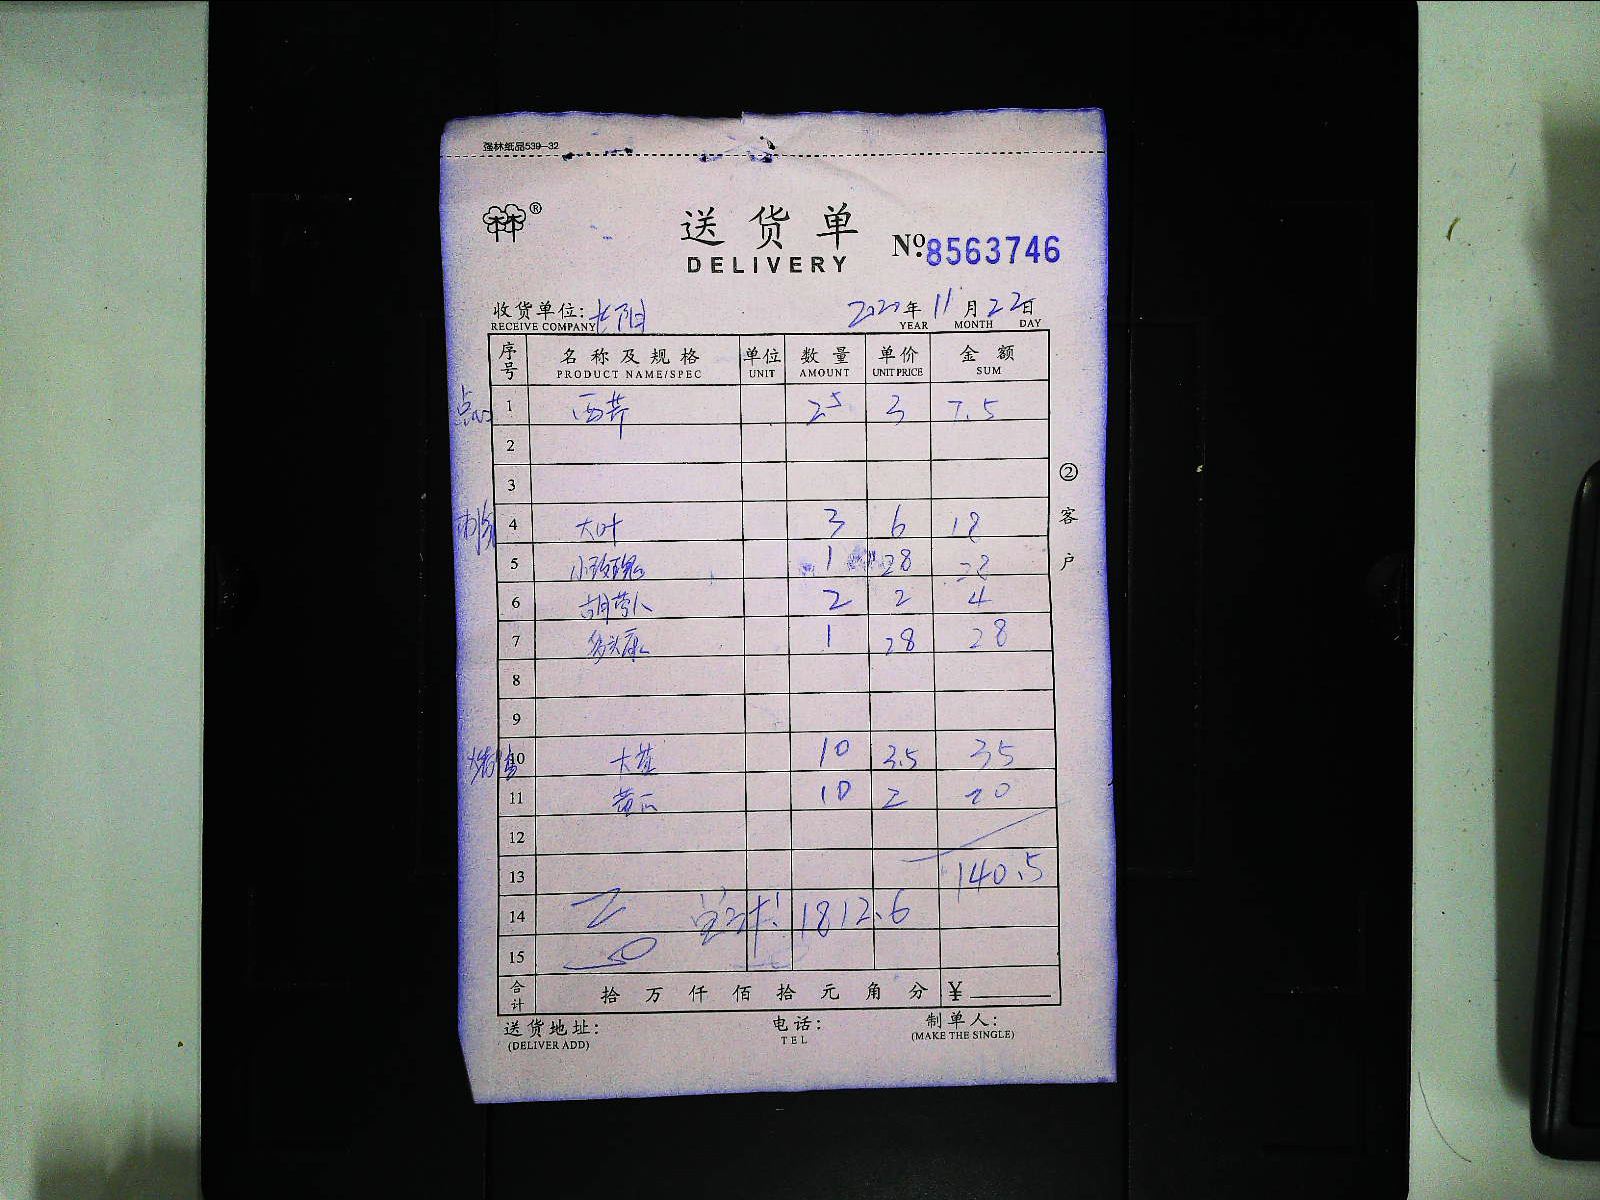 强林纸品539-32
林林®
送货单
DELIVERY
No:8563746
收货单位:长阳 2020年11月22日
RECEIVE COMPANY YEAR MONTH DAY
序号 名称及规格 单位 数量 单价 金额
PRODUCT NAME/SPEC UNIT AMOUNT UNIT PRICE SUM
点心 1 西芹 2.5 3 7.5
2
3
4 大叶 3 6 18
5 小玫瑰 1 28 28
6 胡萝卜 2 2 4
7 1 28 28
8
9
10 大 10 3.5 35
11 黄瓜 10 2 20
12
13 140.5
14 总计: 1812.6
15
合计 拾万仟佰拾元角分 ¥
送货地址: 电话: 制单人:
(DELIVER ADD) TEL (MAKE THE SINGLE)
②客户